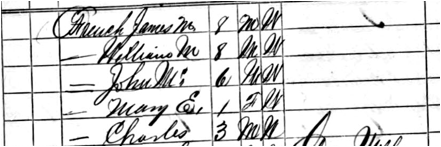 French James M 8 M W
— William M 8 M W
— John Mc 6 M W
— Mary E. 1 F W
— Charles 3 M W